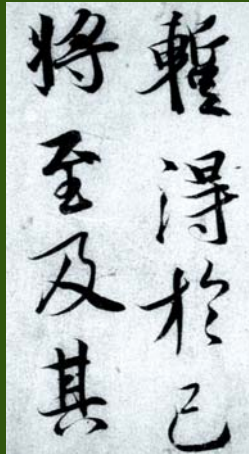 蹔得於己
將至及其